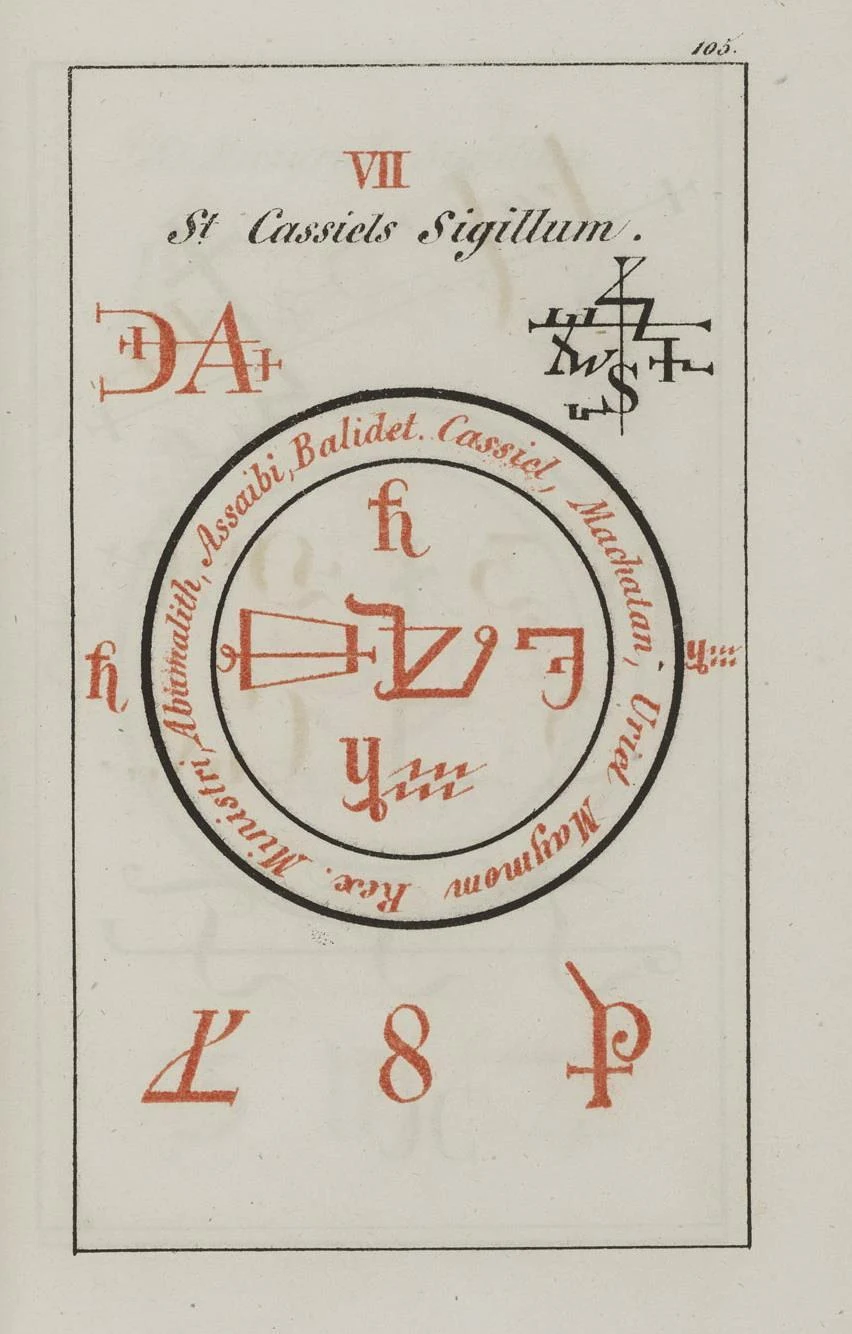 105.
VII
St Cassiels Sigillum.
Cassiel, Machatan, Uriel Maymom Rex. Ministri, Abumalith, Assaibi, Balidet.
8